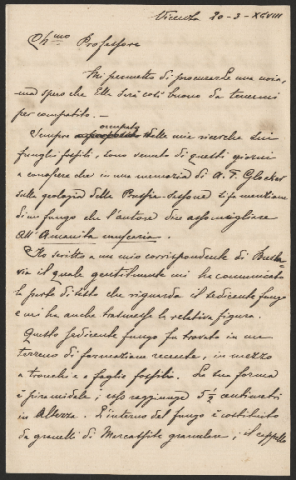 Vicenza 20-3-XCVIII
Ch.mo Professore
Mi permetto di procurarle una noia,
ma spero che Ella sarà così buono da tenermi
per compatito. —
Sempre occupato delle mie ricerche sui
funghi fossili, sono venuto di questi giorni
a conoscere che in una memoria di A. F. Glocker
sulla geologia della Prussia si fa menzione
di un fungo che l'autore dice assomigliare
all'Amanita muscaria.
Ho scritto a un mio corrispondente di
il quale gentilmente mi ha comunicato
la parte di testo che riguarda il sedicente fungo
e mi ha anche trasmesso la relativa figura.
Questo sedicente fungo fu trovato in un
terreno di formazione recente, in mezzo
a tronchi e a foglie fossili. La sua forma
è piramidale; esso raggiunge 5 1/2 centimetri
in altezza. L'interno del fungo è costituito
da granelli di Marcassite granulare; il cappello